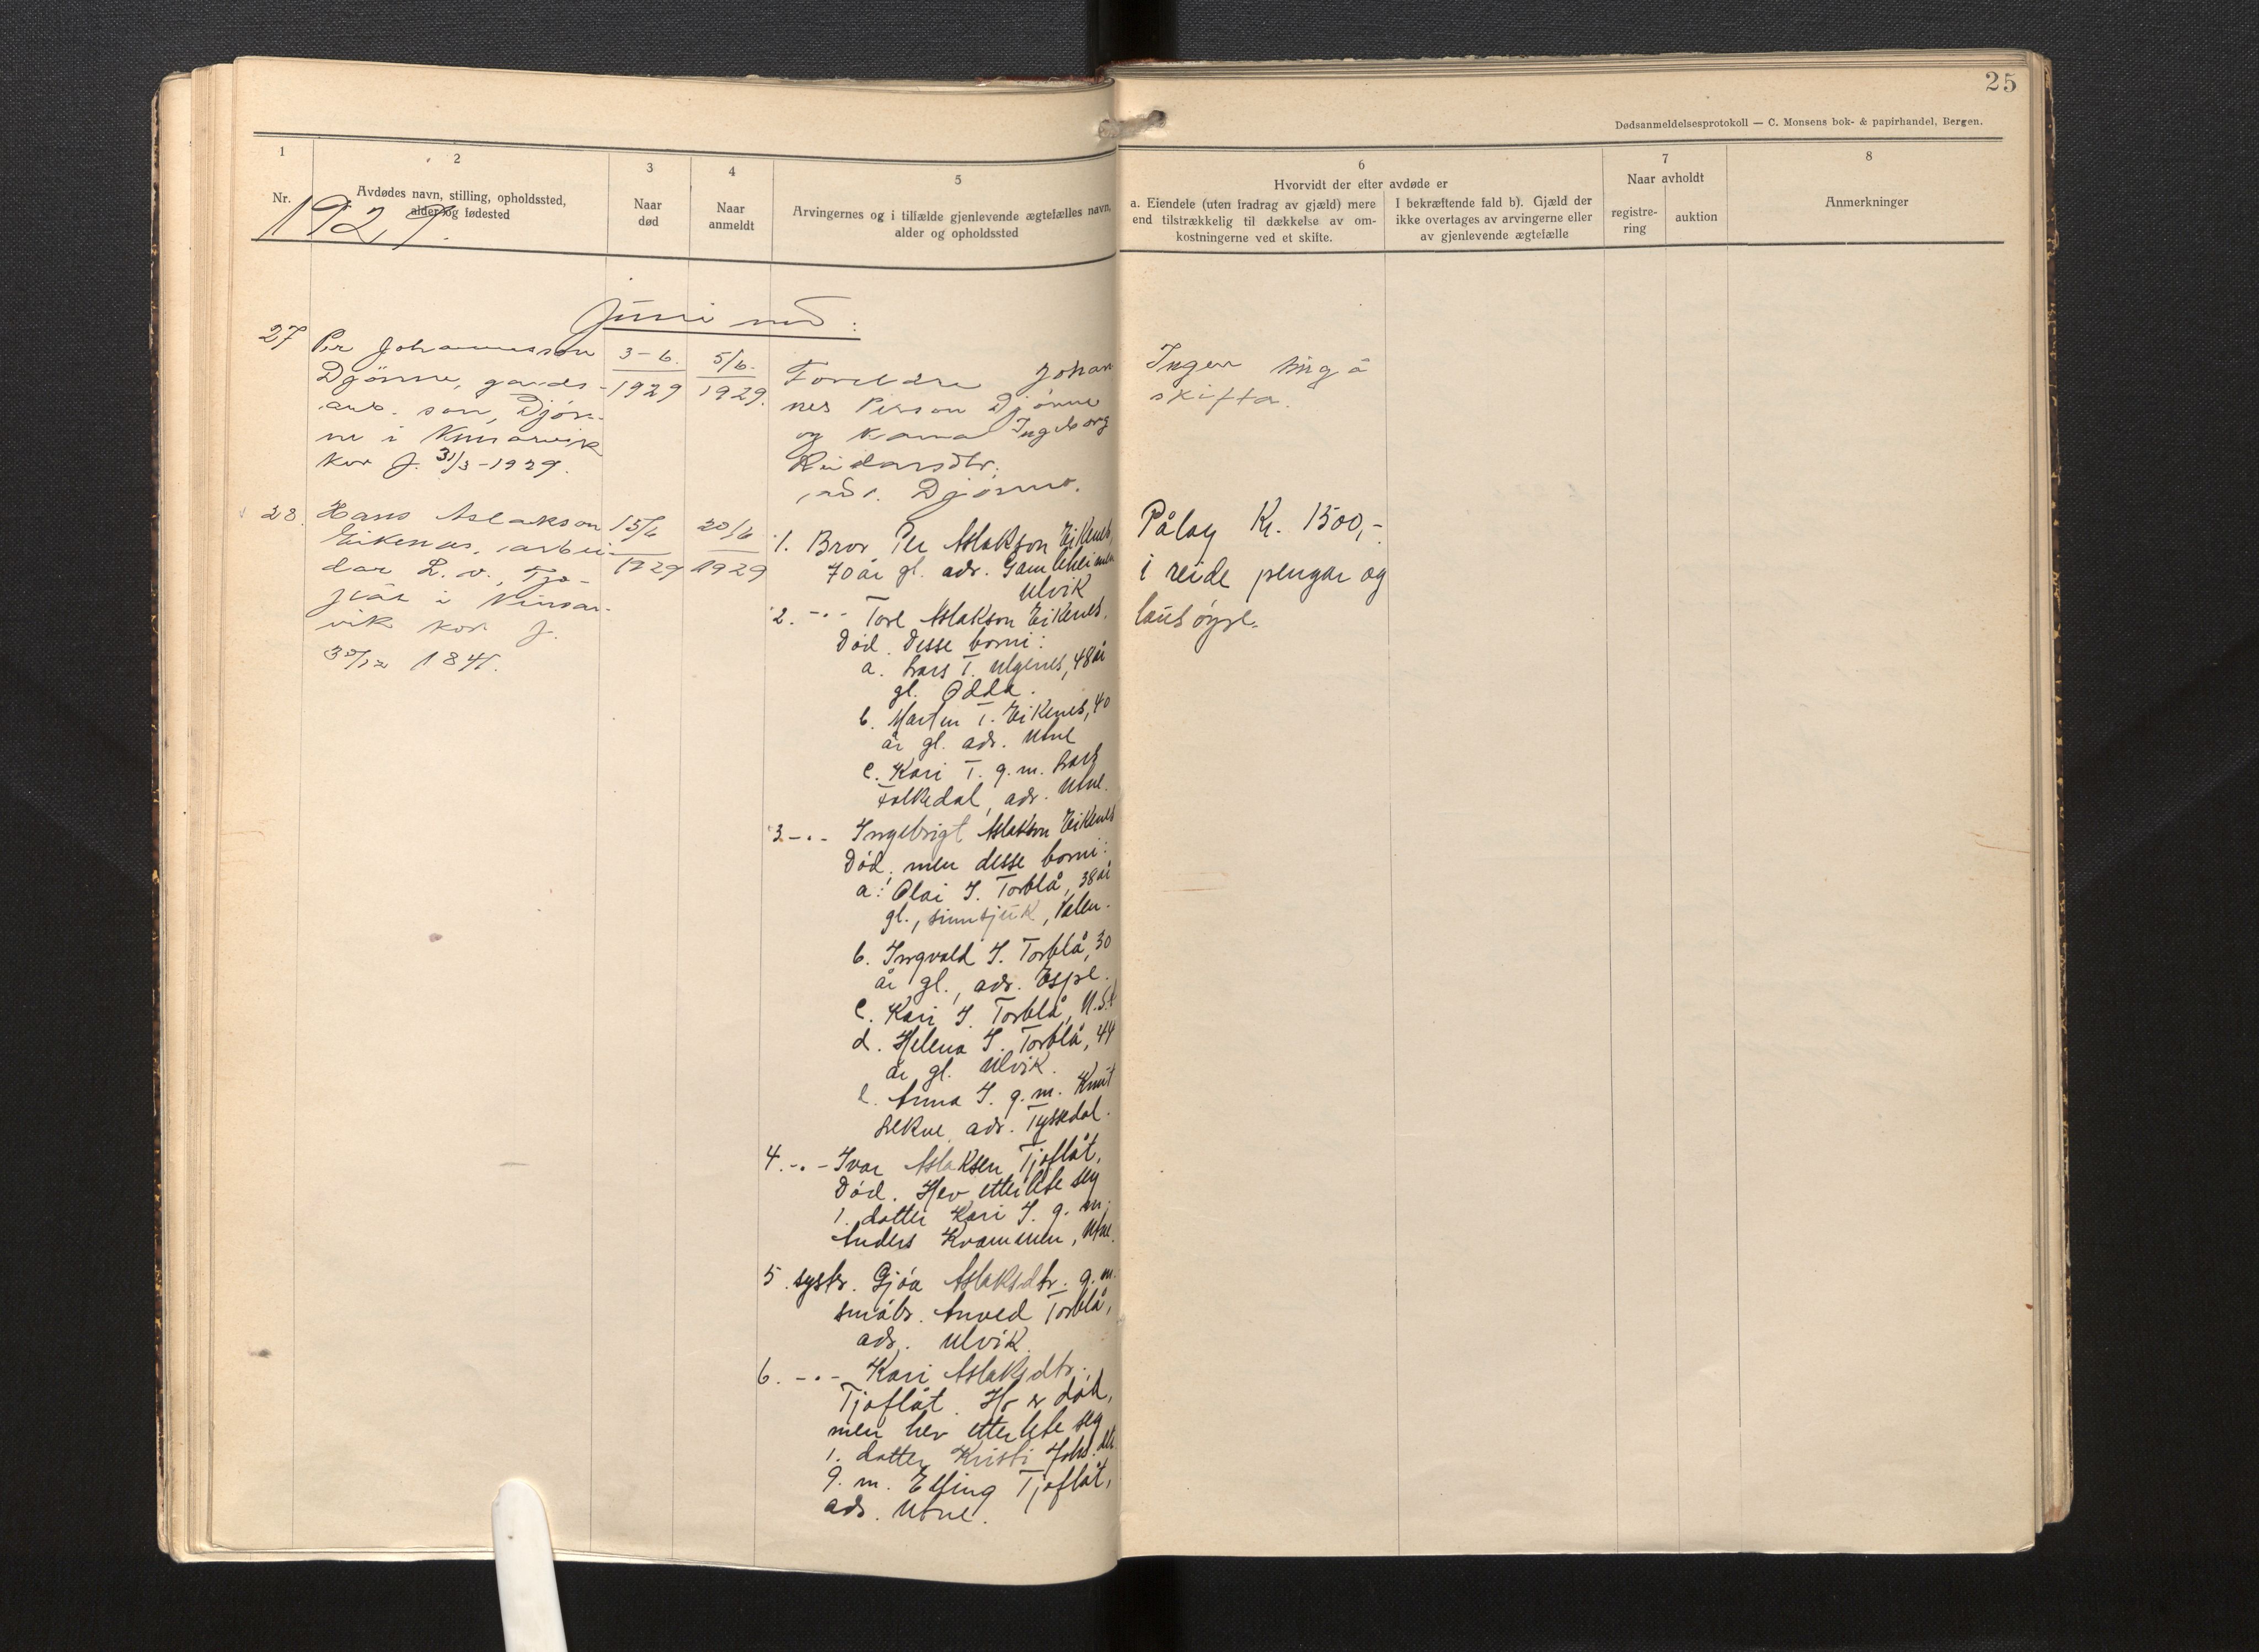 25
Dødsanmeldelsesprotokoll — C. Monsens bok- & papirhandel, Bergen.
1
2
3
4
5
6
7
8
Nr.
Avdødes navn, stilling, opholdssted,
alder og fødested
Naar
død
Naar
anmeldt
Arvingernes og i tilfælde gjenlevende ægtefælles navn,
alder og opholdssted
Hvorvidt der efter avdøde er
a. Eiendele (uten fradrag av gjæld) mere
end tilstrækkelig til dækkelse av om-
kostningerne ved et skifte.
I bekræftende fald b). Gjæld der
ikke overtages av arvingerne eller
av gjenlevende ægtefælle
Naar avholdt
registre-
ring
auktion
Anmerkninger
1929.
Juni md:
27
Per Johannesson
Djönne, gards-
arb. son, Djön-
ne i Kinsarvik
kor f. 31/3-1929.
3-6.
1929
5/6.
1929.
Foreldre Johan
nes Person Djönne
og kona Ingeborg
Reidarsdtr.
adr. Djönne.
Ingen ting å
skifta.
28.
Hans Aslakson
Eikenes, arbei-
dar L. v., Tjo-
flåt i Kinsar-
vik kor f.
30/12 1841.
15/6
1929
20/6
1929
1. Bror Per Aslakson Eikenes,
70 år gl. adr. Gamleheimen
Ulvik
2. -"- Tore Aslakson Eikenes.
Död. Desse borni:
a. Lars T. Ulgenes, 48 år
gl. Odda.
b. Martin T. Eikenes, 40
år gl. adr. Utne
c. Kari T. g. m. Lars
Folkedal, adr. Utne.
3 -"- Ingebrigt Aslakson Eikenes
Död, men desse borni:
a. Olai I. Torblå, 38 år
gl., sinnsjuk, Valen.
b. Ingvald I. Torblå, 30
år gl., adr. Espe.
c. Kari I. Torblå, U.S.A
d. Helena I. Torblå, 44
år gl. Ulvik.
e. Anna I. g. m. Knut
Lekve adr. Tyssedal.
4. -"- Ivar Aslaksen Tjoflåt.
Död. Hev etterlete seg
1. dotter Kari I. g. m.
Anders Kvammen, Utne.
5. systr. Gjöa Aslaksdtr. g. m.
småbr. Anved Torblå,
adr. Ulvik.
6. -"- Kari Aslaksdtr.
Tjoflåt. Ho er död,
men hev etterlete seg
1. dotter Kristi Johs.dtr.
g. m. Elling Tjoflåt,
adr. Utne.
Pålag Kr. 1500,-
i reide pengar og
lausöyre.